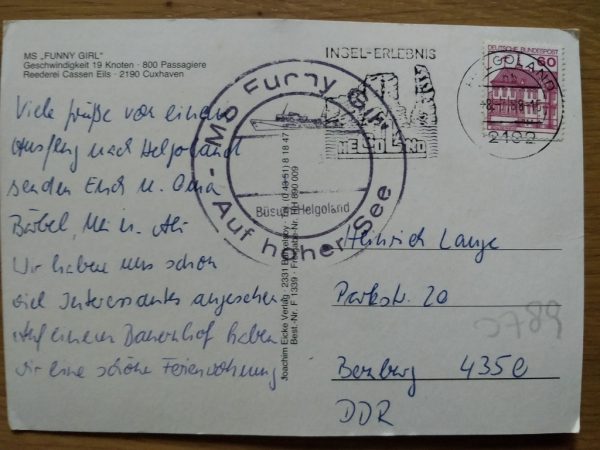 MS „FUNNY GIRL"
Geschwindigkeit 19 Knoten · 800 Passagiere
Reederei Cassen Eils · 2190 Cuxhaven
INSEL-ERLEBNIS
HELGOLAND
DEUTSCHE BUNDESPOST
60
HELGOLAND
2192
MS Funny Girl
Büsum Helgoland
Auf hoher See
Viele Grüße von einem
Ausflug nach Helgoland
senden Euch u. Oma
Bärbel, Uli u. Ali
Wir haben uns schon
viel Interessantes angesehen
Auf einem Bauernhof haben
wir eine schöne Ferienwohnung
Joachim Eicke Verlag · 2331
Best.-Nr. F 1339 ·
Heinrich Lange
Parkstr. 20
Bernburg 4350
DDR